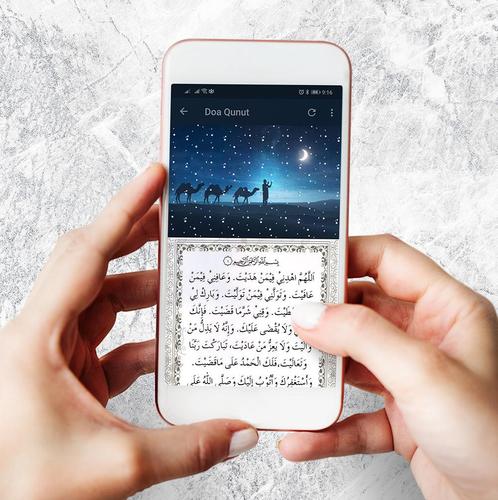 9:16
Doa Qunut
بِسْمِ اللهِ الرَّحْمٰنِ الرَّحِيْمِ
اَللّٰهُمَّ اهْدِنِيْ فِيْمَنْ هَدَيْتَ. وَعَافِنِيْ فِيْمَنْ
عَافَيْتَ. وَتَوَلَّنِيْ فِيْمَنْ تَوَلَّيْتَ. وَبَارِكْ لِيْ
وَقِنِيْ شَرَّمَا قَضَيْتَ. فَإِنَّكَ
وَلَا يُقْضٰى عَلَيْكَ. وَإِنَّهُ لَا يَذِلُّ مَنْ
وَالَيْتَ وَلَا يَعِزُّ مَنْ عَادَيْتَ، تَبَارَكْتَ رَبَّنَا
وَتَعَالَيْتَ، فَلَكَ الْحَمْدُ عَلٰى مَاقَضَيْتَ.
وَأَسْتَغْفِرُكَ وَأَتُوْبُ إِلَيْكَ وَصَلَّى اللهُ عَلٰى